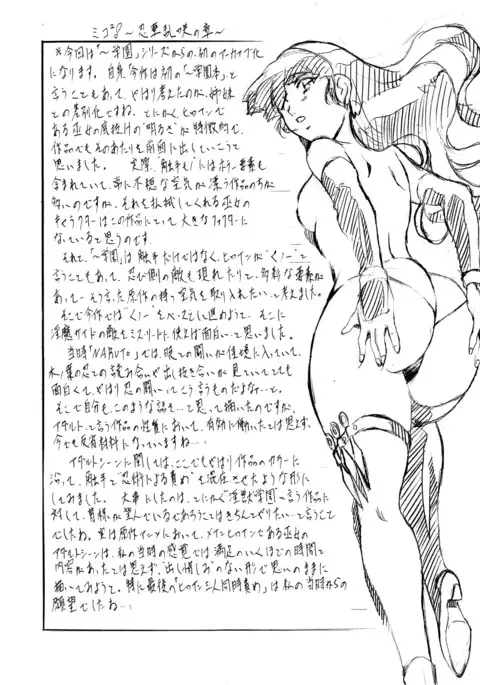 ミコ²8 ～忍悪乱咲の章～
※今回は「～学園」シリーズからの、初のイーカイブ化
になります。自身「今作は初の「～学園本」と
言うこともあって、やはり考えたのが、姉妹
との差別化ですね。とにかく、ヒロインで
ある巫女の底抜けの"明るさ"が特徴的で、
作品でもそのあたりを前面に出していこうと
思いました。 実際、"触手モノ"にはホラー要素も
含まれていて、常に不穏な空気が漂う作品の方が
多いのですが、それを払拭してくれる巫女の
キャラクターはこの作品にとって大きなファクターに
なっていると思うのです。
それと、「～学園」は触手だけではなく、ヒロインが"くノ一"と
言うこともあって、忍び側の敵も現れたりして、多彩な要素が
あって…そう言った原作の持つ空気を取り入れたい、と考えました。
そこで今作では"くノ一"をベースとして進めようて、そこに
淫魔サイドの敵をミスリードに使えば面白い…と思いました。
当時「NARUTO」では、暁との闘いが佳境に入っていて、
木ノ葉の忍との読み合いや出し抜き合いが見ていてとても
面白くて、やはり忍の闘いってこう言うものだよな…と。
そこで自分も、このような話を…と思って描いたのですが、
アダルトと言う作品の性質において、有効に働いたとは思えず、
今でも反省材料になっていますね…。
アダルトシーンに関しては、ここでもやはり作品のカラーに
沿って、触手と"忍術による責め"を混在させたような形に
してみました。 大事にしたのは、とにかく"淫獣学園"と言う作品に
対して、皆様が望んでいるであろうことはきちんとやりたい…と言うこと
でしたね。実は原作アニメにおいて、メインヒロインである巫女の
アダルトシーンは、私の当時の感覚では満足のいくほどの時間と
内容があったとは思えず、"出し惜しみ"のない形で思いのままに
描いてみようて。特に最後の「ヒロイン三人同時責め」は私の当時からの
願望でしたね…。